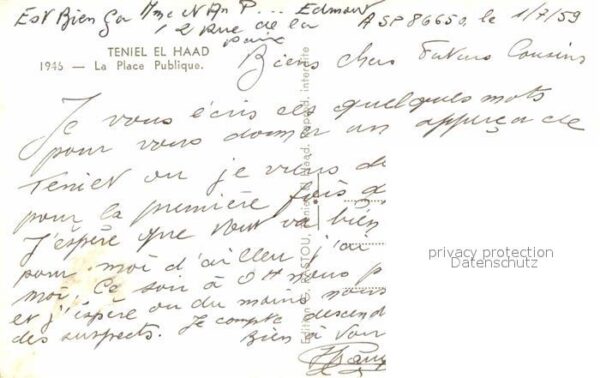 Est Bien ça P... Edmond
12 Rue de la
paix
ASP 86650, le 1/7/59
TENIEL EL HAAD
1946 — La Place Publique.
Biens chers Futurs Cousins
Je vous écris ces quelques mots
pour vous donner un apperçu de
Teniet ou je viens de
pour la première fois
J'espère que tout va bien
pour moi d'ailleur j'ai
moi. Ce soir à nous
et j'espère ou du moins nous
des suspects. Je compte descend
Bien à vou
Edition D. Teniet El Haad. Reprod. interdite
privacy protection
Datenschutz